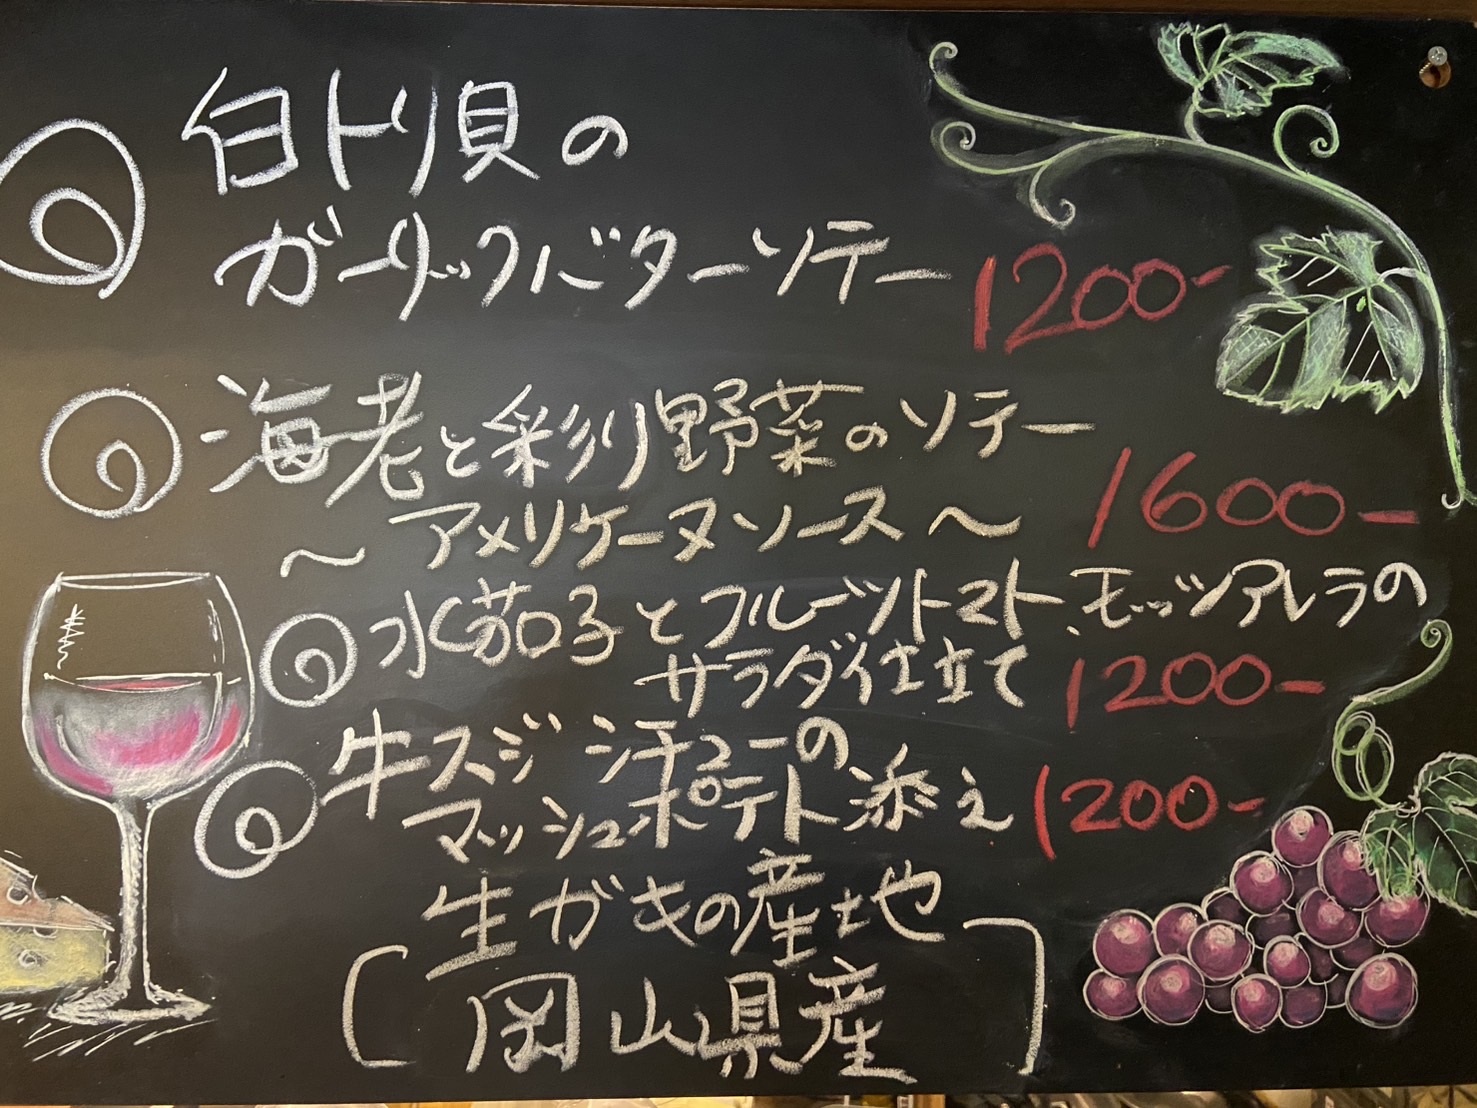 白トリ貝の
ガーリックバターソテー 1200-
海老と彩り野菜のソテー
～アメリケーヌソース～ 1600-
水茄子とフルーツトマト、モッツアレラの
サラダ仕立て 1200-
牛スジシチューの
マッシュポテト添え 1200-
生ガキの産地
[岡山県産]